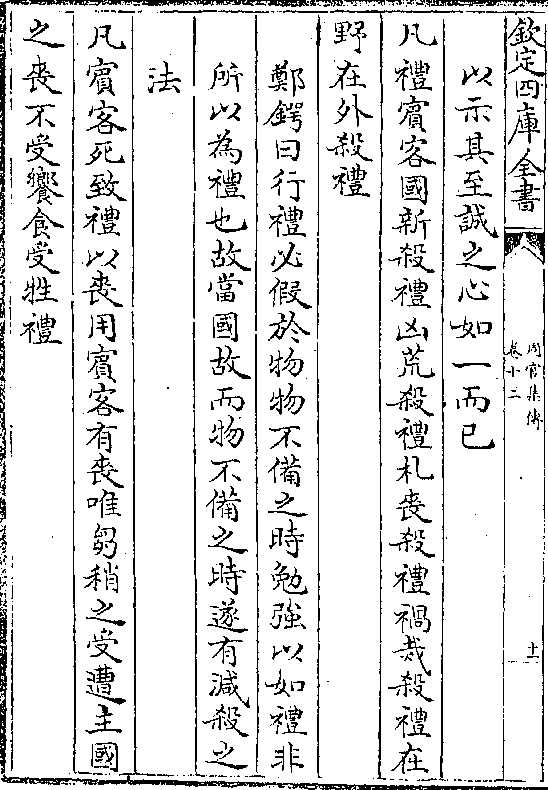 欽定四庫全書
周官集傳
卷十二
十一
以示其至誠之心如一而已
凡禮賓客國新殺禮凶荒殺禮札喪殺禮禍烖殺禮在
野在外殺禮
鄭鍔曰行禮必假於物物不備之時勉強以如禮非
所以為禮也故當國故而物不備之時遂有減殺之
法
凡賓客死致禮以喪用賓客有喪唯芻稍之受遭主國
之喪不受饗食受牲禮